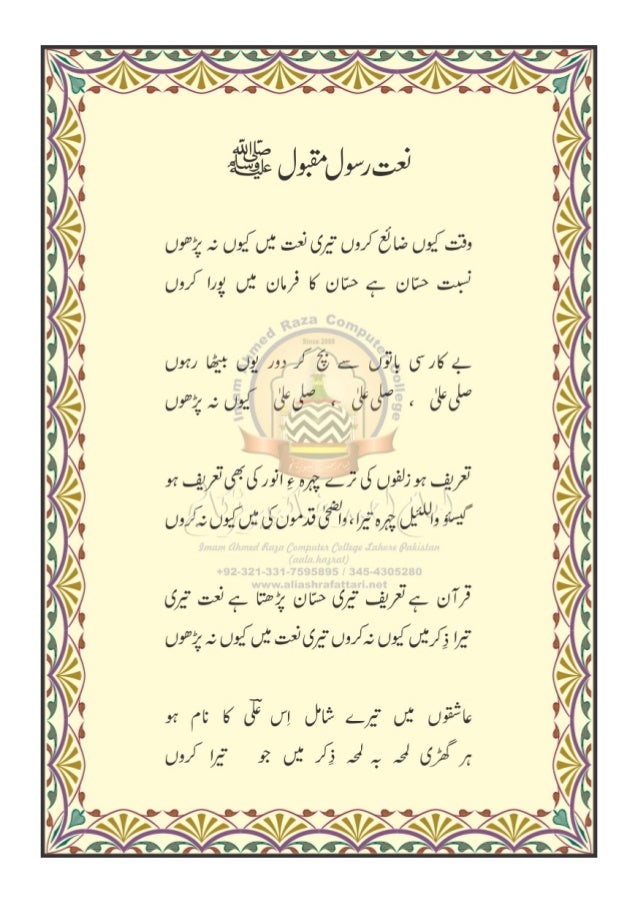 نعت رسول مقبول ﷺ
وقت کیوں ضائع کروں تیری نعت میں کیوں نہ پڑھوں
نسبت حسّان ہے حسّان کا فرمان میں پورا کروں
بے کار سی باتوں سے بچ کر دور یوں بیٹھا رہوں
صلی علیٰ ، صلی علیٰ ، صلی علیٰ کیوں نہ پڑھوں
تعریف ہو زلفوں کی ترے چہرہ ءِ انور کی بھی تعریف ہو
گیسوُ واللئیل چہرہ تیرا، واضحیٰ قدموں کی میں کیوں نہ کروں
قرآن ہے تعریف تیری حسّان پڑھتا ہے نعت تیری
تیرا ذِکر میں کیوں نہ کروں تیری نعت میں کیوں نہ پڑھوں
عاشقوں میں تیرے شامل اِس علیؔ کا نام ہو
ہر گھڑی لمحہ بہ لمحہ ذِکر میں جو تیرا کروں
Imam Ahmed Raza Computer College
Since 2008
Imam Ahmed Raza Computer College Lahore Pakistan
(aala.hazrat)
+92-321-331-7595895 / 345-4305280
www.aliashrafattari.net